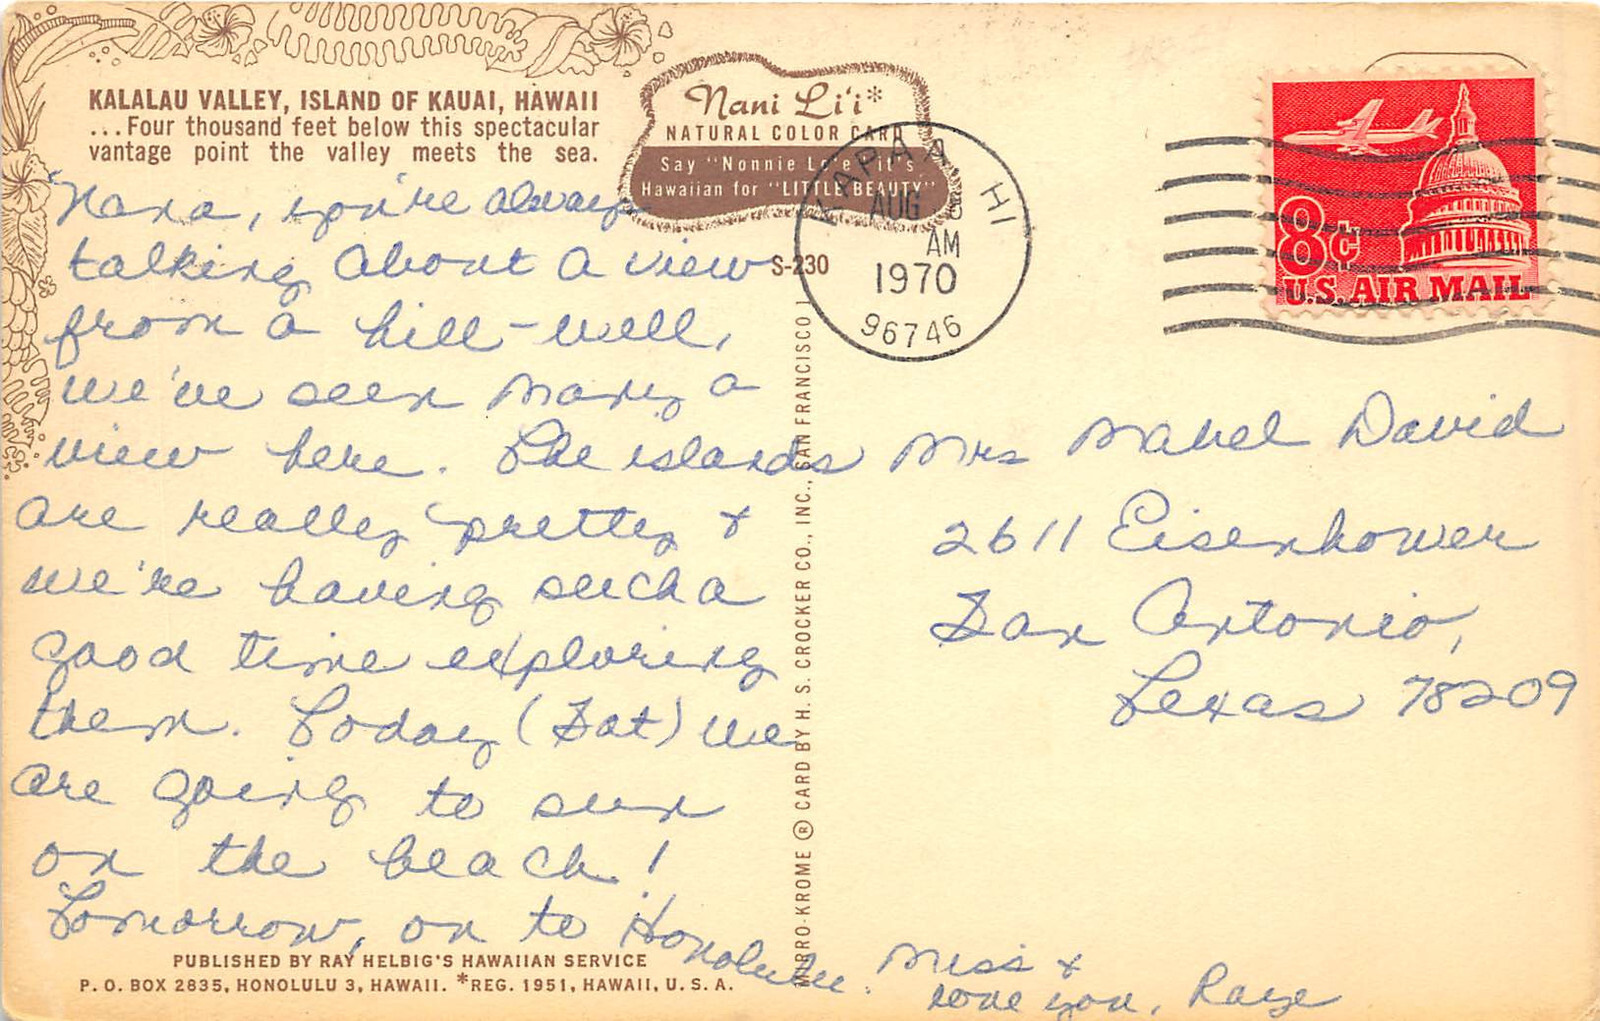 KALALAU VALLEY, ISLAND OF KAUAI, HAWAII
...Four thousand feet below this spectacular
vantage point the valley meets the sea.
Nani Li'i*
NATURAL COLOR CARD
Say "Nonnie Lo'e" it's
Hawaiian for "LITTLE BEAUTY"
S-230
KAPAA HI
AUG 8
AM
1970
96746
8¢
U.S. AIR MAIL
Nana, you're always
talking about a view
from a hill - well,
we've seen many a
view here. The islands
are really pretty &
we're having such a
good time exploring
them. Today (Sat) we
are going to sun
on the beach!
Tomorrow, on to Honolulu.
Miss &
love you, Raye
Mrs Mabel David
2611 Eisenhower
San Antonio,
Texas 78209
MIRRO-KROME ® CARD BY H. S. CROCKER CO., INC., SAN FRANCISCO 1
PUBLISHED BY RAY HELBIG'S HAWAIIAN SERVICE
P. O. BOX 2835, HONOLULU 3, HAWAII. *REG. 1951, HAWAII, U. S. A.